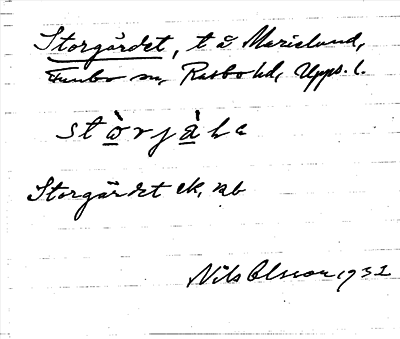 Storgärdet, t å Marielund,
Funbo sn, Rasbo hd, Upps. l.
stòrjàle
Storgärdet ek, nb
Nils Olsson 1932